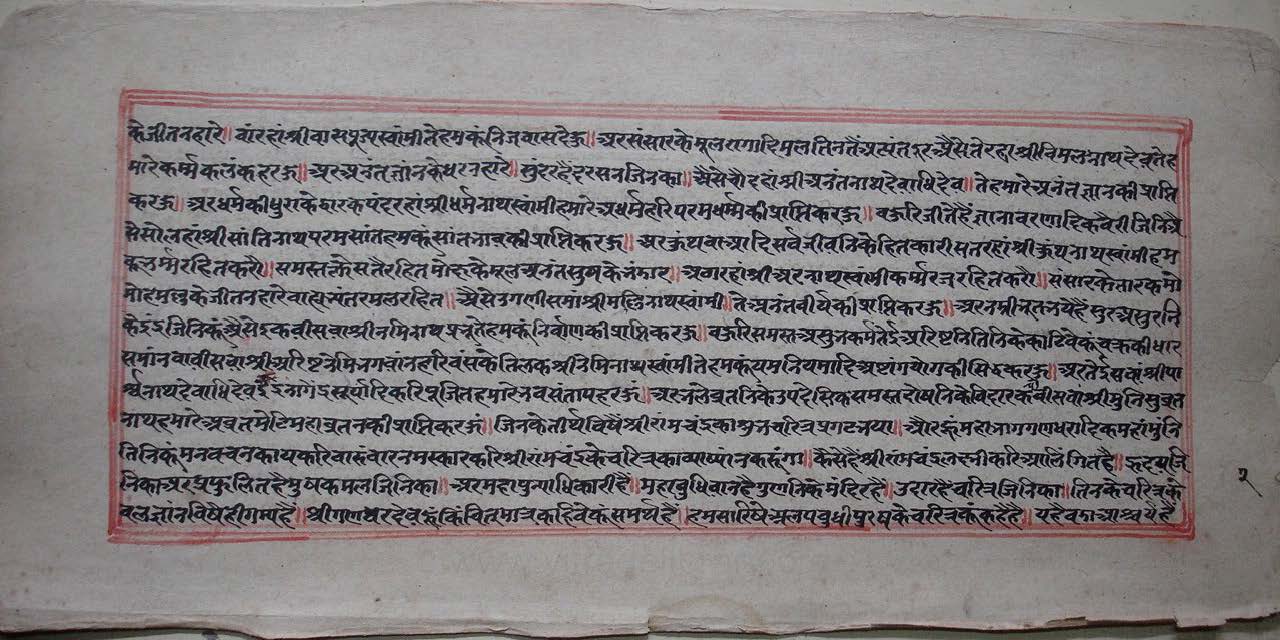 के जीतनहारे॥ वांरहां श्री वासपूज्य स्वांमी ते हमकूं निज वास देऊ॥ अर संसार के मूल रागादि मल तिनतैं अत्यंत दूर अैसे तेरहां श्री विमलनाथ देव ते ह
मारे कर्म्म कलंक हरऊ॥ अर अनंत ज्ञांन के धरनहारे॥ सुंदर है दरसन जिनका॥ अैसे चौदहां श्री अनंतनाथ देवाधिदेव॥ ते हमारे अनंत ज्ञान की प्राप्ति
करऊ॥ अर धर्म की धुरा के धारक पंदरहां श्री धर्मनाथ स्वामी हमारे अधर्म हरि परम धर्म्म की प्राप्ति करऊ॥ वऊरि जीते हैं ज्ञानावरणादिक वैरी जिनि अै
सें सोलहां श्री सांतिनाथ परम सांत हमकूं सांत भाव की प्राप्ति करऊ॥ अर कुंथवा आदि सर्व जीवनि के हितकारी सतरहां श्री कुंथनाथ स्वांमी हम
कूं भ्रम रहित करौ॥ समस्त क्लेस तैं रहित मोक्ष के मूल अनंत सुष के भंडार॥ अठारहां श्री अरनाथ स्वामी कर्म्म रज रहित करो॥ संसार के तारक मो
ह मल्ल के जीतनहारे वाह्याभ्यंतर मल रहित॥ अैसे उगणीसमा श्री मल्लिनाथ स्वांमी॥ ते अनंत वीर्य की प्राप्ति करऊ॥
के इंद्र जिनिकूं अैसे इकवीसवां श्री नमिनाथ प्रभू ते हमकूं निर्वाण की प्राप्ति करऊ॥ वऊरि समस्त असुभ कर्म तेई अरिष्ट
समांन वावीसवां श्री अरिष्टनेमि भगवांन हरिवंस के तिलक श्री नेमिनाथ स्वांमी ते हमकूं यम नियमादि अष्टांग योग की सिद्धि करऊ॥ अर तेईसवां श्री पा
र्श्वनाथ देवाधिदेव इंद्र नागेंद्र सूर्यादिक करि पूजित हमारे भव संताप हरऊं॥ वीसवां श्री मुनिसुव्रत
नाथ हमारे अव्रत मेटि महाव्रतन की प्राप्ति करऊं॥ जिनके तीर्थ विषैं श्री रांमचंद्र का शुभ चरित्र प्रगट भया॥ गणधरादिक महांमुनि
तिनिकूं मन वचन काय करि वारंवार नमस्कार करि श्री रांमचंद्र के चरित्र का व्याष्यांन करूंगा॥ कैसे है श्री रांमचंद्र लक्ष्मी करि आलिंगित है॥ हृदय जि
निका अर प्रफुलित है मुष कमल जिनिका॥ अर महा पुन्याधिकारी है॥ महा वुधिवान है गुणनि के मंदिर है॥ उदार है चरित्र जिनिका॥ तिनके चरित्र के
वल ज्ञांन विषै ही गम्य है॥ श्री गणधर देव हूं किंचित मात्र कहिवेकूं समर्थ हैं॥ हम सारिषे अलप वुधी पुरुष के चरित्र कूं कहै है॥ यह वडा आश्चर्य है
२